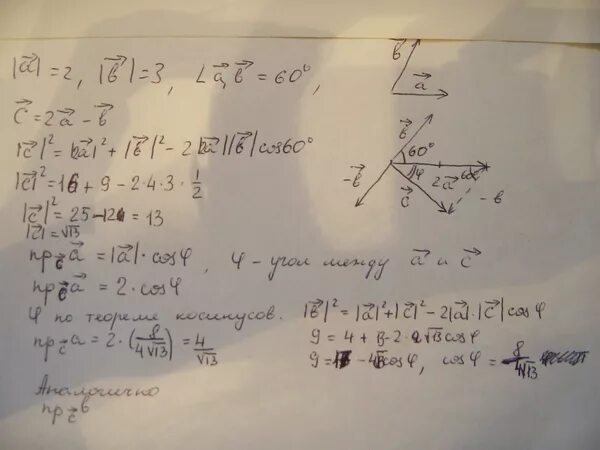 |a⃗| = 2, |b⃗| = 3, ∠a⃗,b⃗ = 60°,
c⃗ = 2a⃗ - b⃗
|c⃗|² = |2a⃗|² + |b⃗|² - 2|2a⃗||b⃗|cos60°
|c⃗|² = 16 + 9 - 2·4·3·1/2
|c⃗|² = 25 - 12 = 13
|c⃗| = √13
пр_c⃗ a⃗ = |a⃗|·cosφ, φ - угол между a⃗ и c⃗
пр_c⃗ a⃗ = 2·cosφ
φ по теореме косинусов. |b⃗|² = |a⃗|² + |c⃗|² - 2|a⃗|·|c⃗|cosφ
пр_c⃗ a = 2·(8/4√13) = 4/√13
9 = 4 + 13 - 2·2√13cosφ
9 = 17 - 4√13cosφ, cosφ = 8/4√13
Аналогично
пр_c⃗ b
b⃗
a⃗
b⃗
60°
-b⃗
c⃗
φ
2a⃗
60°
-b